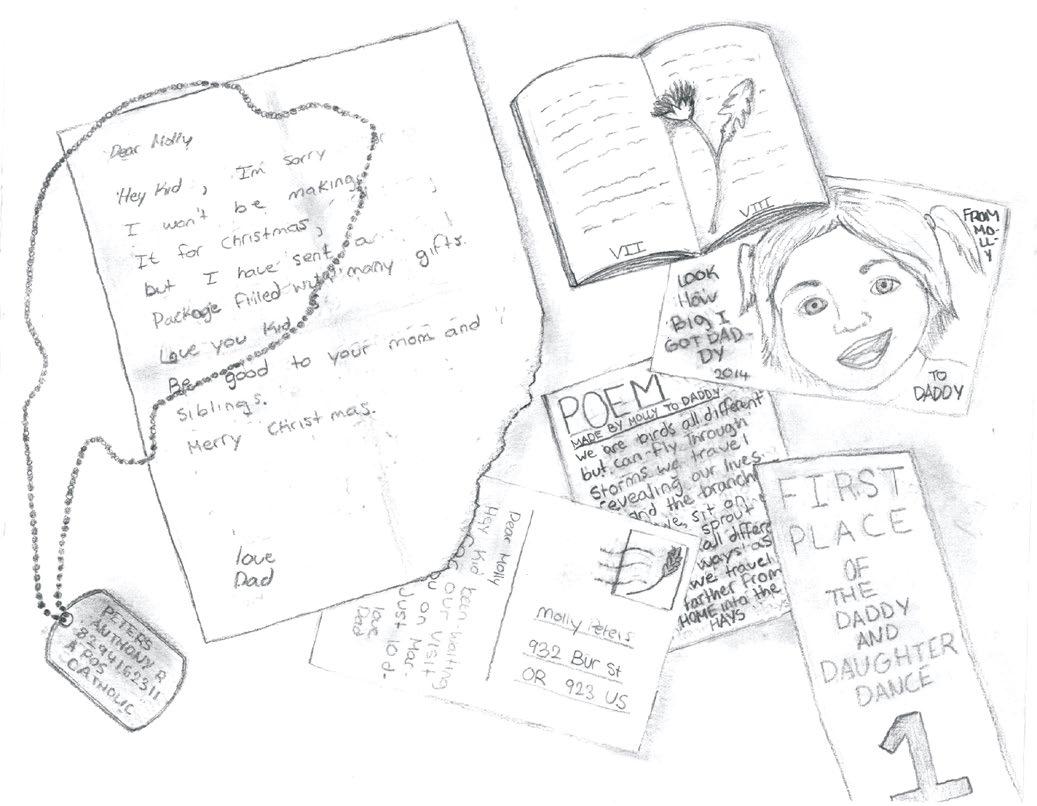 Dear Molly
Hey Kid, I'm sorry
I won't be making
It for Christmas,
but I have sent a
Package filled with many gifts.
Love you Kid
Be good to your mom and
siblings.
Merry Christmas.
love
Dad
PETERS
ANTHONY R
8294162311
A POS
CATHOLIC
VII
VIII
LOOK
HOW
Big I
GOT DAD-
DY
2014
FROM
MO-
LL-
Y
TO
DADDY
POEM
MADE BY MOLLY TO DADDY
we are birds all different
but can-fly through
Storms we travel
revealing our lives.
and the branch
sit on
sprout
all differ
ways as
we travel
farther From
HOME into the
HAYS
Dear Molly
Hey Kid been waiting
For our visit
on Mar.
Just 10d.
love
Dad
Molly Peters
932 Bur St
OR 923 US
FIRST
PLACE
OF
THE
DADDY
AND
DAUGHTER
DANCE
1